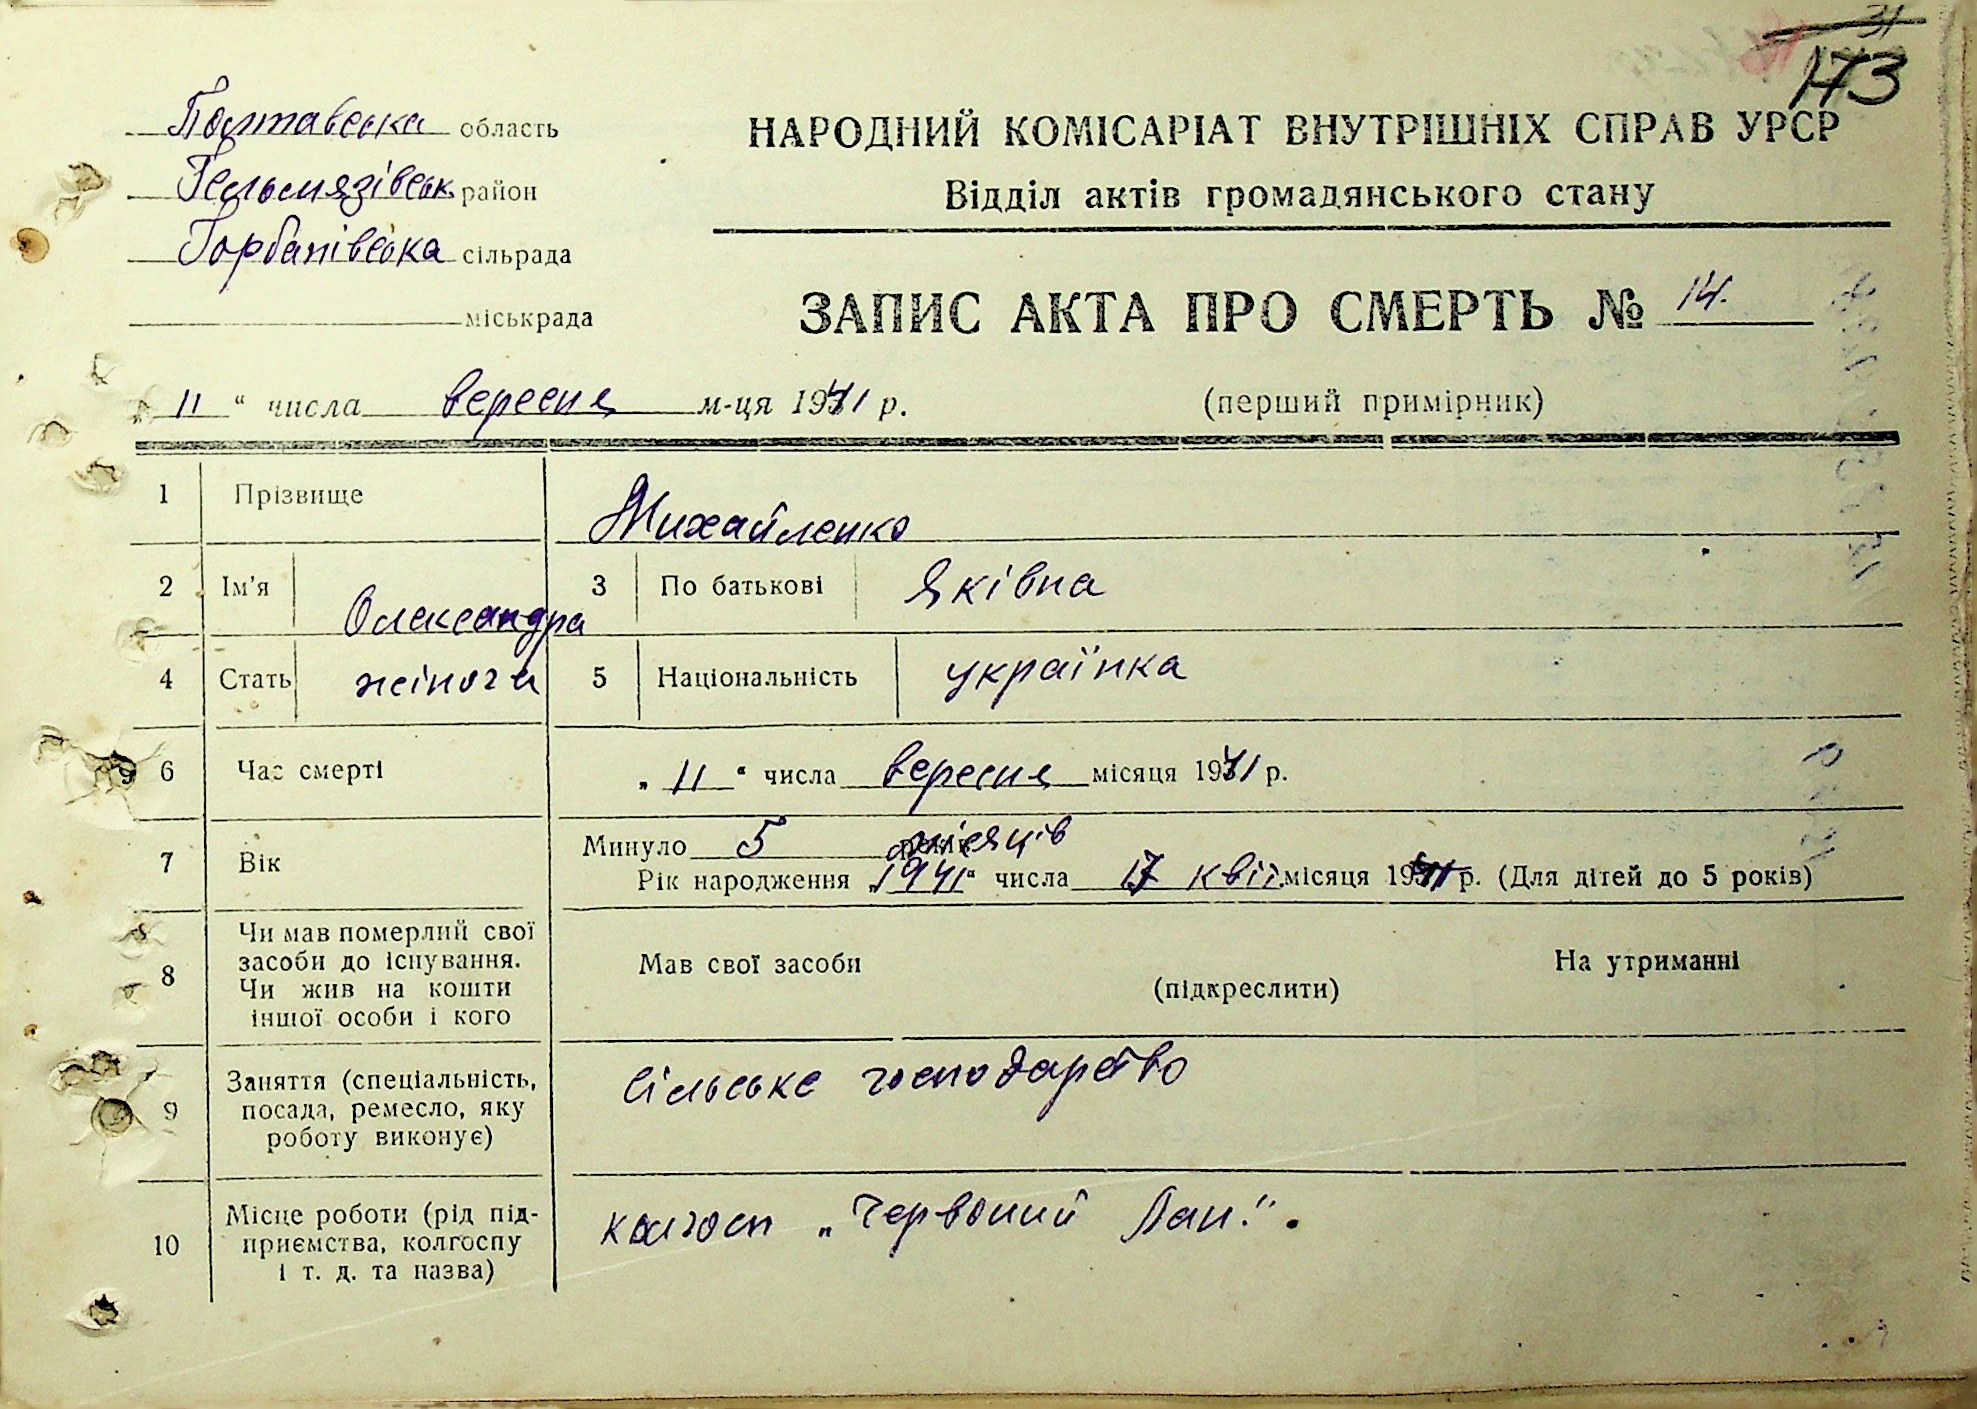 173
Полтавська область
НАРОДНИЙ КОМІСАРІАТ ВНУТРІШНІХ СПРАВ УРСР
Гельмязівськ район
Відділ актів громадянського стану
Горбанівська сільрада
міськрада
ЗАПИС АКТА ПРО СМЕРТЬ № 14.
„ 11 “ числа вересня м-ця 1941 р.
(перший примірник)
1 Прізвище Михайленко
2 Ім'я Олександра 3 По батькові Яківна
4 Стать жіноча 5 Національність українка
6 Час смерті „ 11 “ числа вересня місяця 1941 р.
7 Вік Минуло 5 місяців
Рік народження „1941“ числа 17 квіт. місяця 1941 р. (Для дітей до 5 років)
8 Чи мав померлий свої
засоби до існування.
Чи жив на кошти
іншої особи і кого
Мав свої засоби
(підкреслити)
На утриманні
9 Заняття (спеціальність,
посада, ремесло, яку
роботу виконує)
сільське господарство
10 Місце роботи (рід під-
приємства, колгоспу
і т. д. та назва)
колгосп „Червоний Лан."